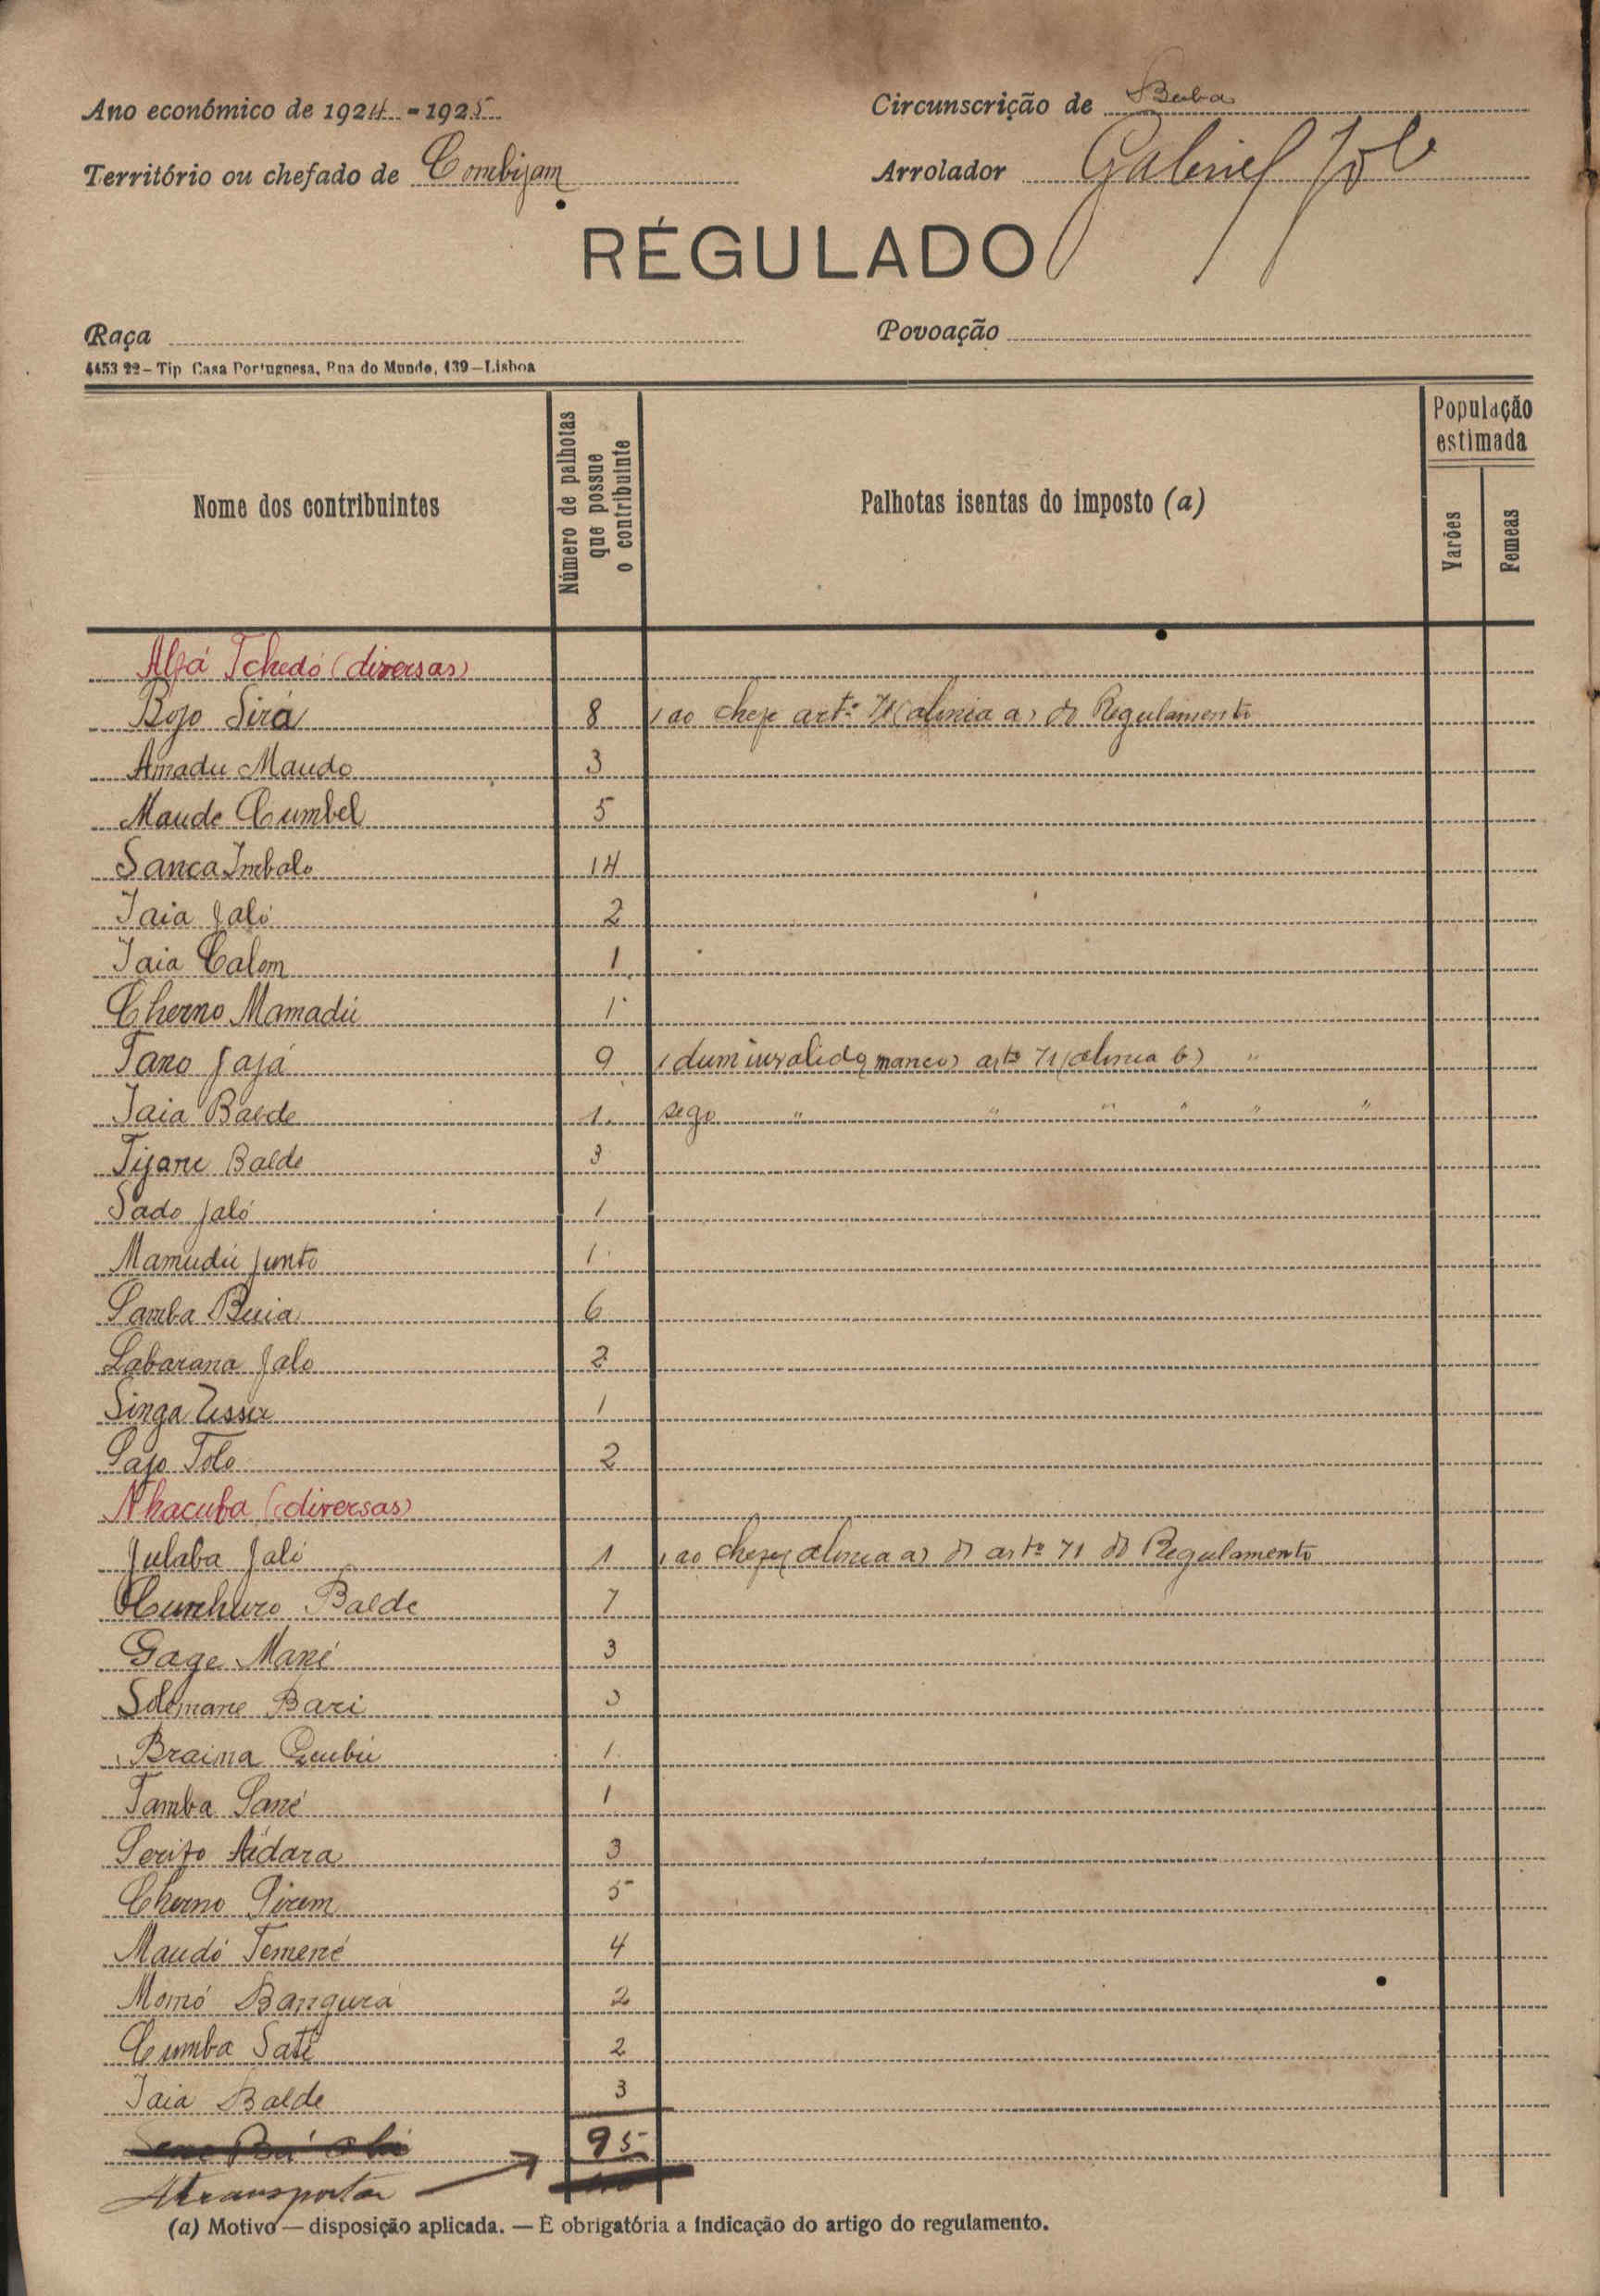 Ano económico de 1924-1925 Circunscrição de Buba
Território ou chefado de Combijam Arrolador Gabriel
RÉGULADO
Raça Povoação
4453 22 – Tip. Casa Portuguesa, Rua do Mundo, 139 – Lisboa
Nome dos contribuintes
Número de palhotas que possue o contribuinte
Palhotas isentas do imposto (a)
População estimada
Varões
Femeas
Alfá Tchedó (diversas)
Bojo Sirá 8 1 ao chefe artº 71 (alinia a) do Regulamento
Amadu Maudo 3
Maude Cumbel 5
Sanca Imbalo 14
Iaia Jaló 2
Iaia Calom 1
Cherno Mamadú 1
Tano Jajá 9 1 dum invalido (manco) artº 71 (alinia b) "
Iaia Balde 1 sego " " " " " "
Tijane Balde 3
Sado Jaló 1
Mamudú Junto 1
Samba Buia 6
Labarana Jalo 2
Singa 1
Sajo Tolo 2
Nhacuba (diversas)
Julaba Jaló 1 1 ao chefe (alinia a) do artº 71 do Regulamento
Cunhuro Balde 7
Gage Mané 3
Solemane Bari 3
Braima 1
Tamba Sané 1
Serifo Aidara 3
Cherno 5
Maudó Temené 4
Momó Bangura 2
Cumba Sati 2
Iaia Balde 3
95
A transportar
(a) Motivo — disposição aplicada. — É obrigatória a indicação do artigo do regulamento.